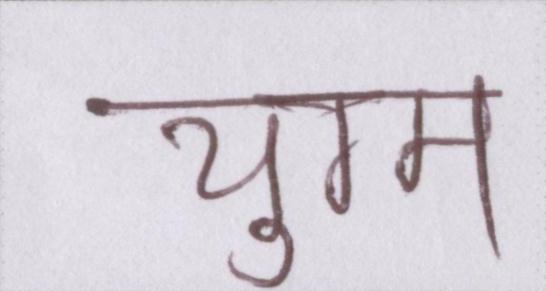 युग्म